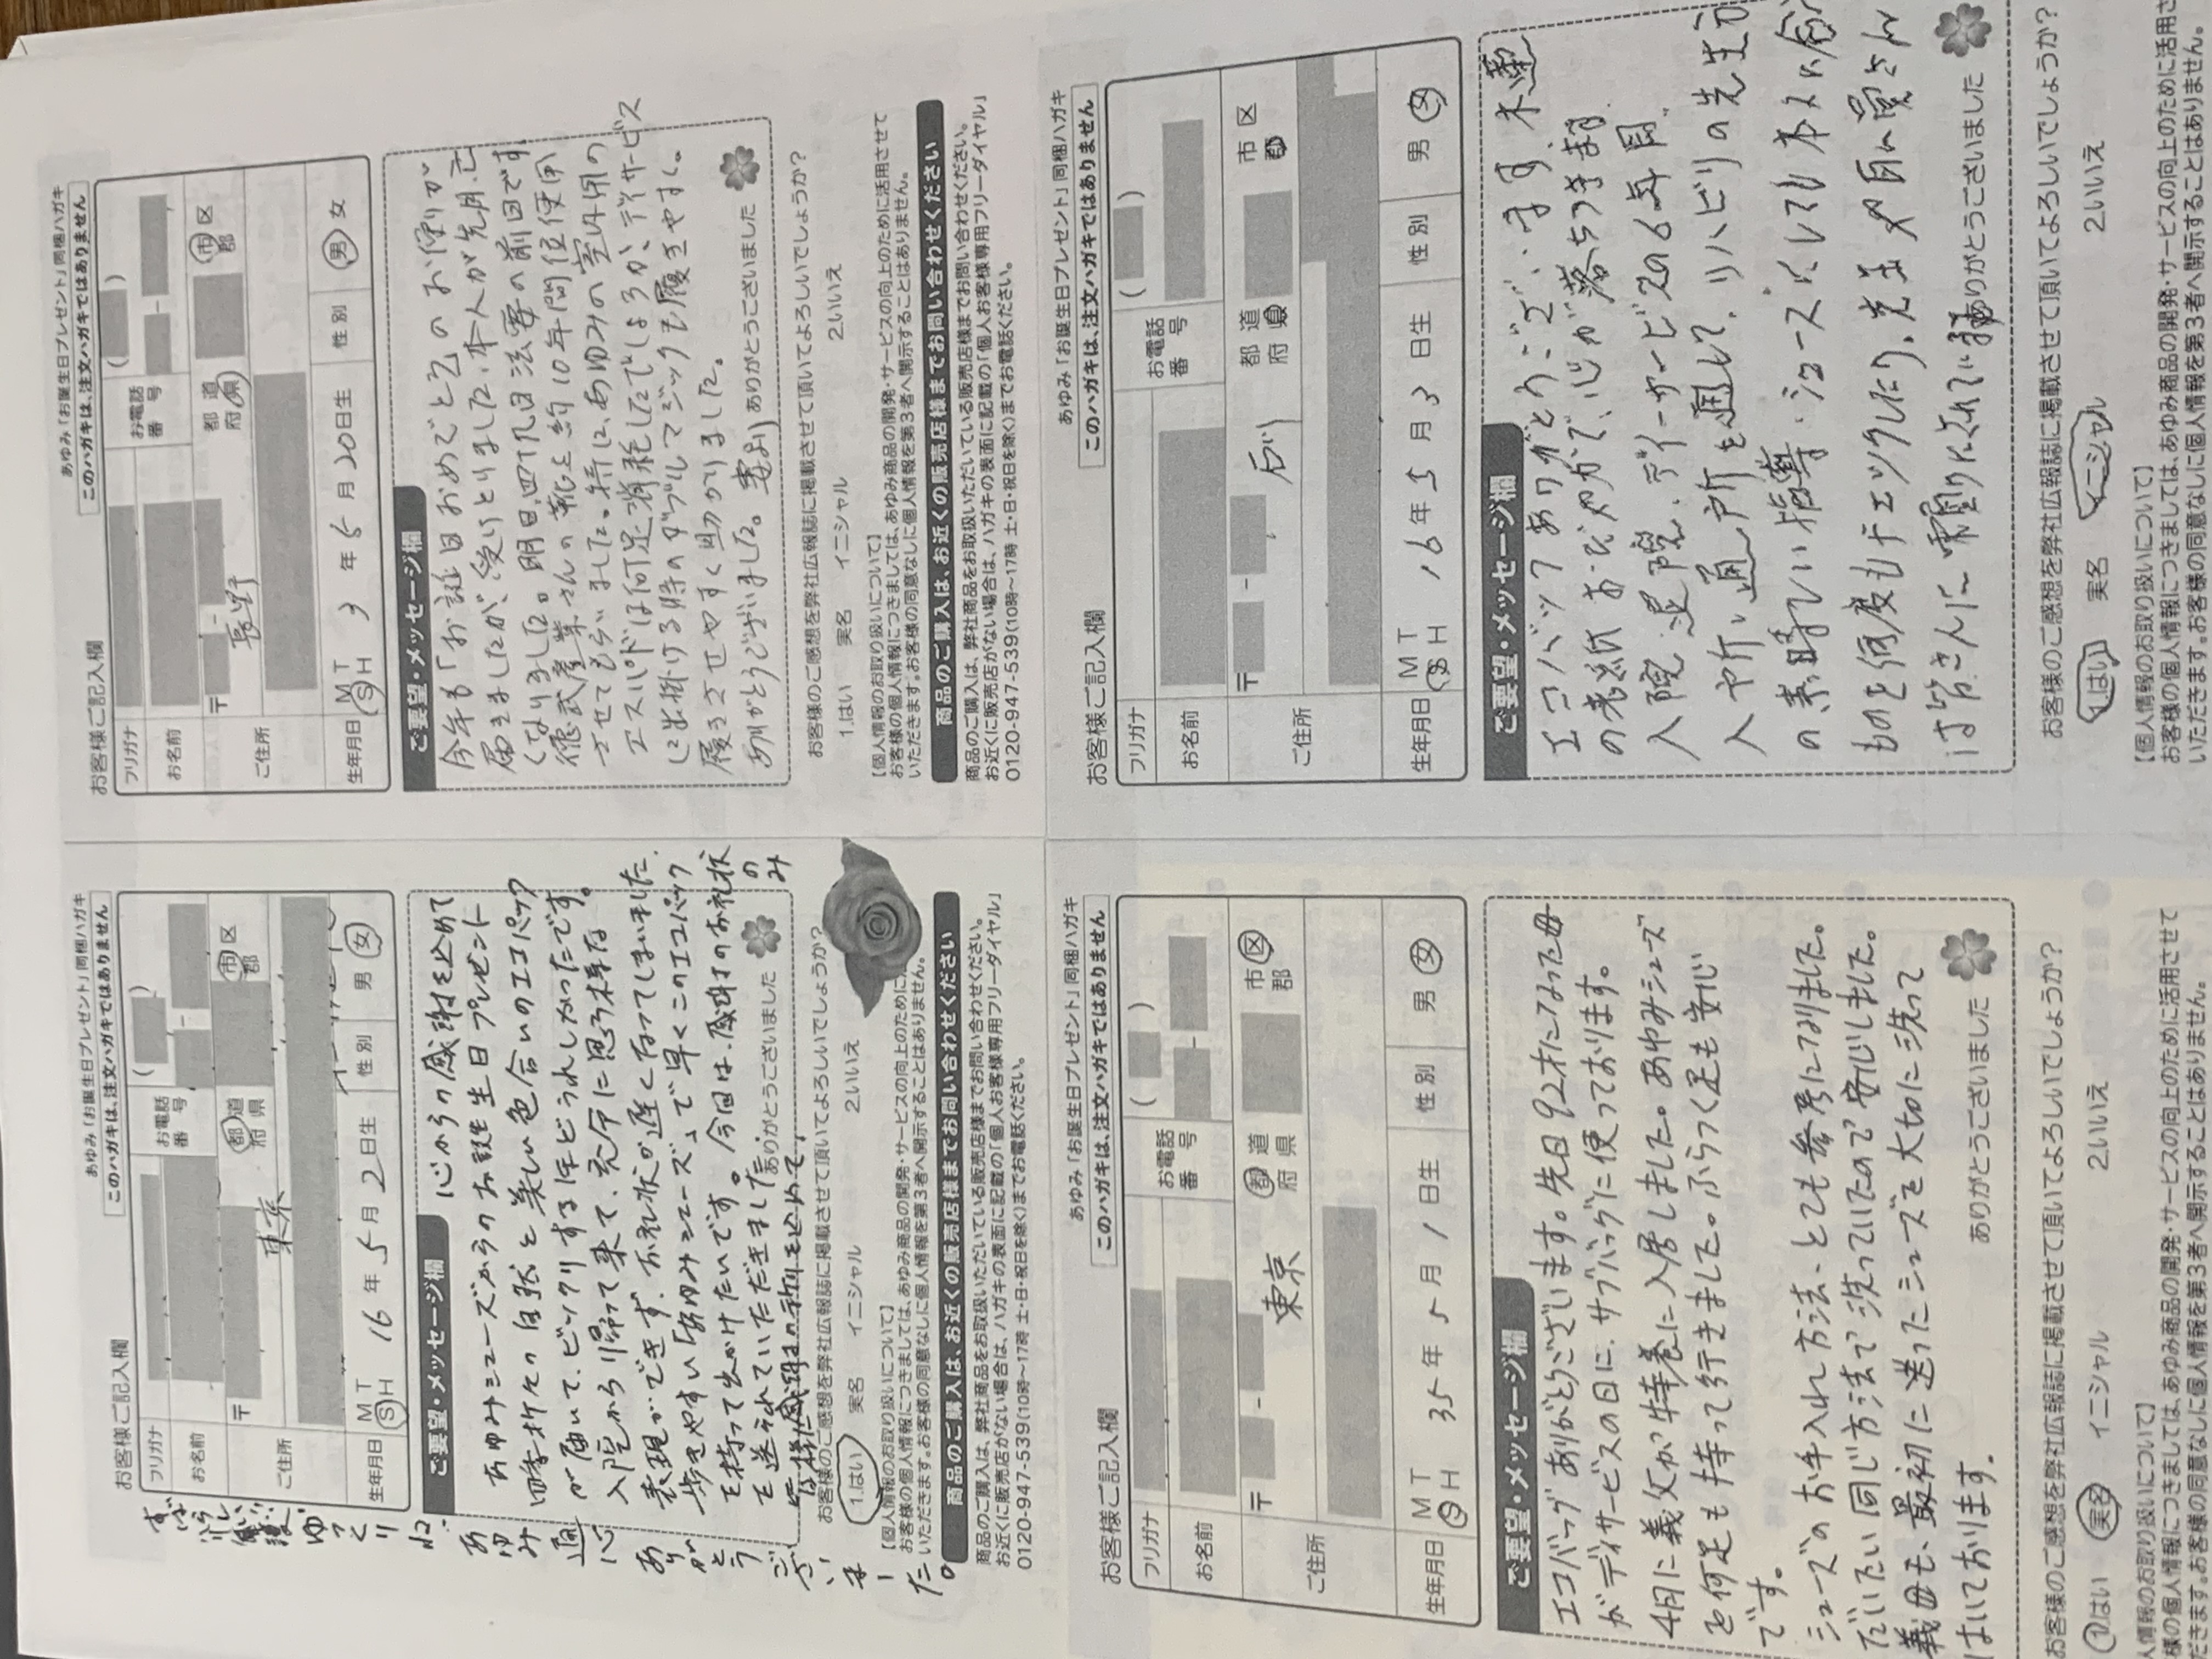 あゆみ「お誕生日プレゼント」同梱ハガキ
このハガキは、注文ハガキではありません
お客様ご記入欄
フリガナ
お名前
お電話番号 ( )
〒
ご住所 東京 都道府県 市区郡
生年月日 M T S H 16年5月2日生 性別 男 女
ご要望・メッセージ欄
心からの感謝を込めて
あゆみシューズからのお誕生日プレゼント
四季折々の自然と美しい色合いのエコバッグ
が届いて、ビックリする程どうれしかったです。
入院から帰って来て、充分に思う様な
表現ができず、お礼状が遅くなってしまいました。
歩きやすい「あゆみシューズ」で早くこのエコバック
を持って出かけたいです。今回は、感謝のお礼状のみ
を送らせていただきました。
皆様に感謝の祈りを込めて、
ありがとうございました
すばらしい
ゆっくり
ね。
あゆみ通心ありがとうございました。
お客様のご感想を弊社広報誌に掲載させて頂いてよろしいでしょうか?
1.はい 実名 イニシャル 2.いいえ
【個人情報のお取り扱いについて】
お客様の個人情報につきましては、あゆみ商品の開発・サービスの向上のために
いただきます。お客様の同意なしに個人情報を第3者へ開示することはありません。
商品のご購入は、お近くの販売店様までお問い合わせください
商品のご購入は、弊社商品をお取扱いいただいている販売店様までお問い合わせください。
お近くに販売店がない場合は、ハガキの表面に記載の「個人お客様専用フリーダイヤル」
0120-947-539(10時〜17時 土・日・祝日を除く)までお電話ください。
あゆみ「お誕生日プレゼント」同梱ハガキ
このハガキは、注文ハガキではありません
お客様ご記入欄
フリガナ
お名前
お電話番号 ( )
〒
ご住所 長野 都道府県 市区郡
生年月日 M T S H 3年5月20日生 性別 男 女
ご要望・メッセージ欄
今年も「お誕生日おめでとう」のお便りが
届きましたが、受けとりました。本人が先月、亡
くなりました。明日、四十九日法要の前日です
徳武産業さんの靴を約10年間位使用
させてもらいました。特に、あゆみの室内用の
エスパドは何足消耗したでしょうか、デイサービス
に出掛ける時のダブルマジックも履きやすく。
履きさせやすく助かりました。
ありがとうございました。妻より
ありがとうございました
お客様のご感想を弊社広報誌に掲載させて頂いてよろしいでしょうか?
1.はい 実名 イニシャル 2.いいえ
【個人情報のお取り扱いについて】
お客様の個人情報につきましては、あゆみ商品の開発・サービスの向上のために活用させて
いただきます。お客様の同意なしに個人情報を第3者へ開示することはありません。
商品のご購入は、お近くの販売店様までお問い合わせください
商品のご購入は、弊社商品をお取扱いいただいている販売店様までお問い合わせください。
お近くに販売店がない場合は、ハガキの表面に記載の「個人お客様専用フリーダイヤル」
0120-947-539(10時〜17時 土・日・祝日を除く)までお電話ください。
あゆみ「お誕生日プレゼント」同梱ハガキ
このハガキは、注文ハガキではありません
お客様ご記入欄
フリガナ
お名前
お電話番号 ( )
〒
ご住所 東京 都道府県 市区郡
生年月日 M T S H 35年5月1日生 性別 男 女
ご要望・メッセージ欄
エコバッグありがとうございます。先日92才になった母
がデイサービスの日に、サブバッグに使っております。
4月に義父が特養に入居しました。あゆみシューズ
を何足も持って行きました。ふらつく足も安心
です。
シューズのお手入れ方法、とても参考になりました。
だいたい同じ方法で洗っていたので安心しました。
義母も、最初に送ったシューズを大切に洗って
はいております。
ありがとうございました
お客様のご感想を弊社広報誌に掲載させて頂いてよろしいでしょうか?
1.はい 実名 イニシャル 2.いいえ
人情報のお取り扱いについて】
様の個人情報につきましては、あゆみ商品の開発・サービスの向上のために活用させて
だきます。お客様の同意なしに個人情報を第3者へ開示することはありません。
あゆみ「お誕生日プレゼント」同梱ハガキ
このハガキは、注文ハガキではありません
お客様ご記入欄
フリガナ
お名前
お電話番号 ( )
〒
ご住所 石川 都道府県 市区郡
生年月日 M T S H 16年5月3日生 性別 男 女
ご要望・メッセージ欄
エコバッグありがとうございます 木蓮
の表紙おだやかで、心が落ちつきます
入院、退院、デイーサービスの6年間。
入や折い通所を通して、リハビリの先生方
の素晴しい指導、シューズにしても本人に合
ものを何度もチェックしたり、先生や
は皆さんに
ありがとうございました
お客様のご感想を弊社広報誌に掲載させて頂いてよろしいでしょうか?
1.はい 実名 イニシャル 2.いいえ
【個人情報のお取り扱いについて】
お客様の個人情報につきましては、あゆみ商品の開発・サービスの向上のために活用さ
いただきます。お客様の同意なしに個人情報を第3者へ開示することはありません。